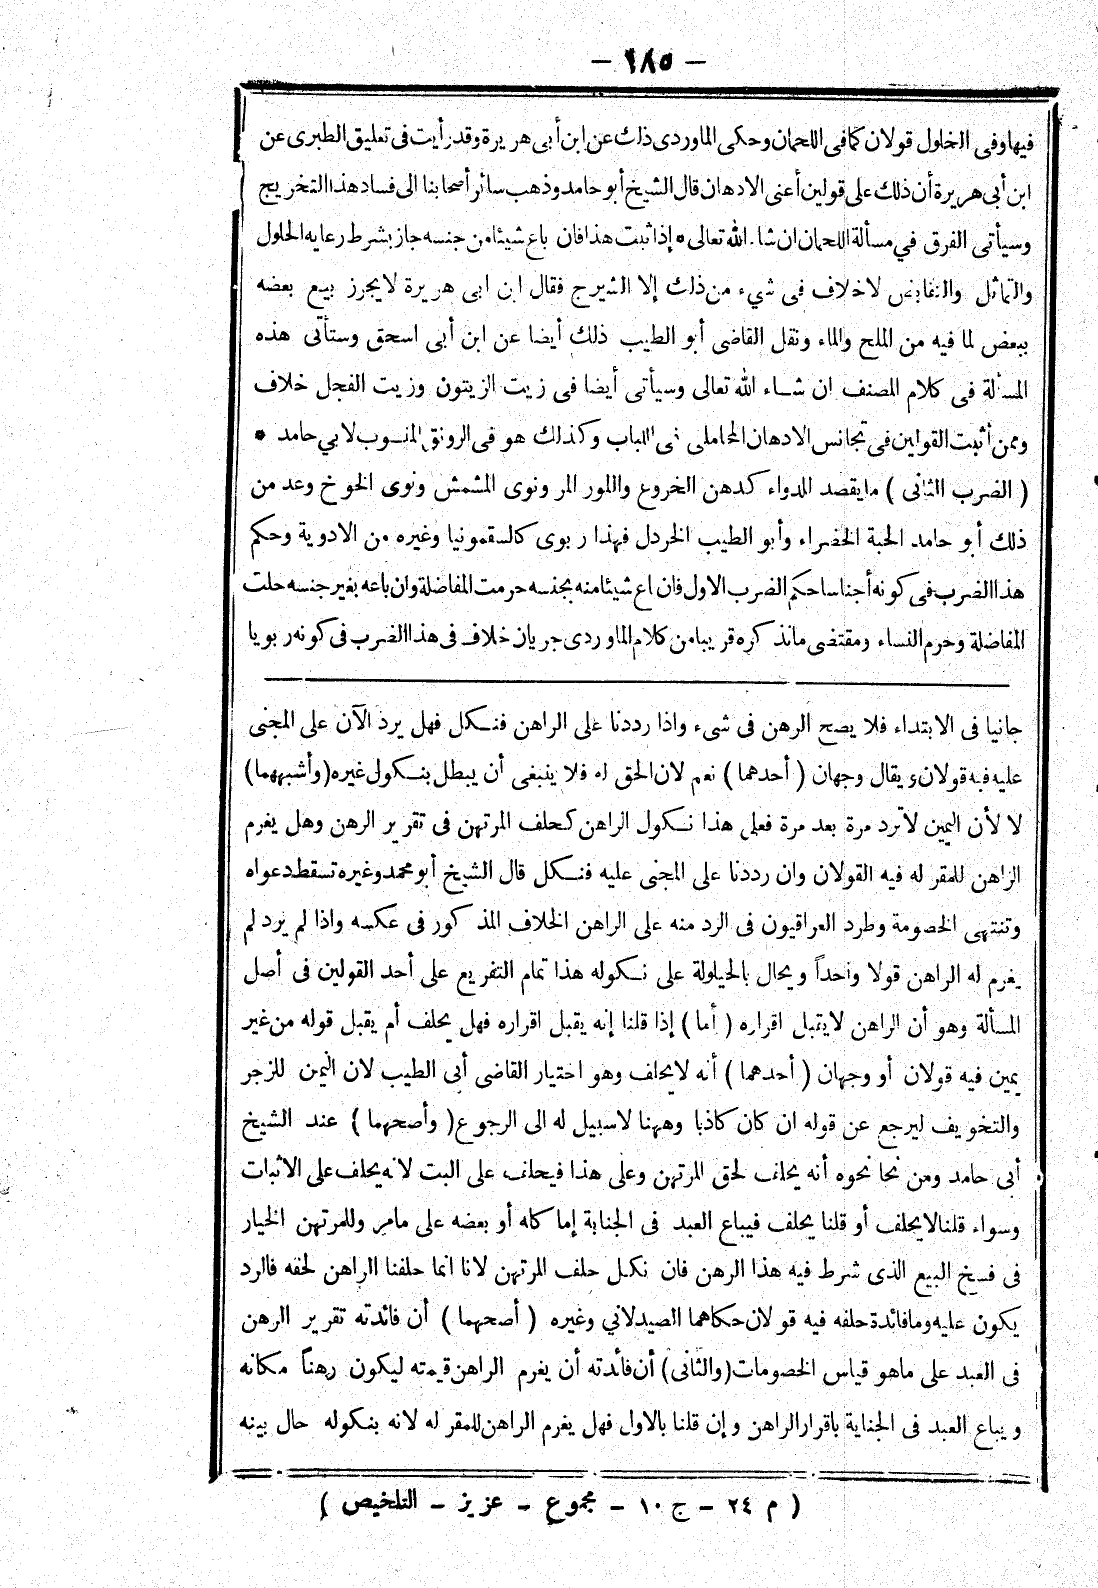 – ١٨٥ –
فيها وفى الخلول قولان كما فى اللحمان وحكى الماوردى ذلك عن ابن أبى هريرة وقد رأيت فى تعليق الطبرى عن
ابن أبى هريرة أن ذلك على قولين أعنى الادهان قال الشيخ أبو حامد وذهب سائر أصحابنا الى فساد هذا التخريج
وسيأتى الفرق في مسألة اللحمان ان شاء الله تعالى * إذا ثبت هذا فان باع شيئا من جنسه جاز بشرط رعايه الحلول
والتماثل والتقابض لاخلاف فى شيء من ذلك إلا الشيرج فقال ابن ابى هريرة لايجوز بيع بعضه
ببعض لما فيه من الملح والماء ونقل القاضى أبو الطيب ذلك أيضا عن ابن أبى اسحق وستأتى هذه
المسألة فى كلام المصنف ان شاء الله تعالى وسيأتى أيضا فى زيت الزيتون وزيت الفجل خلاف
وممن أثبت القولين فى تجانس الادهان المحاملى فى اللباب وكذلك هو فى الرونق المنسوب لابي حامد *
( الضرب الثانى ) مايقصد للدواء كدهن الخروع واللوز المر ونوى المشمش ونوى الخوخ وعد من
ذلك أبو حامد الحبة الخضراء وأبو الطيب الخردل فهذا ربوى كالسقمونيا وغيره من الادوية وحكم
هذا الضرب فى كونه أجناسا حكم الضرب الاول فان باع شيئا منه بجنسه حرمت المفاضلة وان باعه بغير جنسه حلت
المفاضلة وحرم النساء ومقتضى مانذكره قريبا من كلام الماوردى جريان خلاف فى هذا الضرب فى كونه ربويا
جانيا فى الابتداء فلا يصح الرهن فى شىء واذا رددنا على الراهن فنكل فهل يرد الآن على المجنى
عليه فيه قولان ويقال وجهان ( أحدهما ) نعم لان الحق له فلا ينبغى أن يبطل بنكول غيره (وأشبههما)
لا لأن اليمين لاترد مرة بعد مرة فعلى هذا نكول الراهن كحلف المرتهن فى تقرير الرهن وهل يغرم
الراهن للمقر له فيه القولان وان رددنا على المجنى عليه فنكل قال الشيخ أبو محمد وغيره تسقط دعواه
وتنتهى الخصومة وطرد العراقيون فى الرد منه على الراهن الخلاف المذكور فى عكسه واذا لم يرد لم
يغرم له الراهن قولا واحداً ويحال بالحيلولة على نكوله هذا تمام التفريع على أحد القولين فى أصل
المسألة وهو أن الراهن لايقبل اقراره ( أما ) إذا قلنا إنه يقبل اقراره فهل يحلف أم يقبل قوله من غير
يمين فيه قولان أو وجهان ( أحدهما ) أنه لايحلف وهو اختيار القاضى أبى الطيب لان اليمين للزجر
والتخويف ليرجع عن قوله ان كان كاذبا وههنا لاسبيل له الى الرجوع ( وأصحهما ) عند الشيخ
أبى حامد ومن نحا نحوه أنه يحلف لحق المرتهن وعلى هذا فيحلف على البت لانه يحلف على الاثبات
وسواء قلنا لايحلف أو قلنا يحلف فيباع العبد فى الجناية إما كله أو بعضه على مامر وللمرتهن الخيار
فى فسخ البيع الذى شرط فيه هذا الرهن فان نكل حلف المرتهن لانا انما حلفنا الراهن لحقه فالرد
يكون عليه وما فائدة حلفه فيه قولان حكاهما الصيدلاني وغيره ( أصحهما ) أن فائدته تقرير الرهن
فى العبد على ماهو قياس الخصومات (والثانى) أن فائدته أن يغرم الراهن قيمته ليكون رهناً مكانه
ويباع العبد فى الجناية باقرار الراهن وإن قلنا بالاول فهل يغرم الراهن للمقر له لانه بنكوله حال بينه
( م ٢٤ – ج ١٠ – مجموع – عزيز – التلخيص )